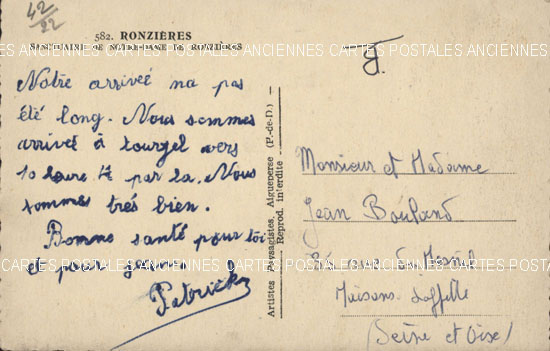 42
22
582. RONZIÈRES
SANCTUAIRE DE NOTRE-DAME DE RONZIÈRES
CARTES POSTALES ANCIENNES CARTES POSTALES ANCIENNES CARTES POSTALES ANCIENNES
Notre arriveé na pas
été long. Nous sommes
arrivet à tourgel vers
10 heure ½ par la. Nous
sommes très bien.
Bonne santé pour toi
et pour
Patrick
Artistes Paysagistes, Aigueperse (P.-de-D.)
Reprod. interdite
Monsieur et Madame
Jean Bouland
rue du Mesnil
Maisons Laffitte
(Seine et Oise)
CARTES POSTALES ANCIENNES CARTES POSTALES ANCIENNES CARTES POSTALES ANCIENNES